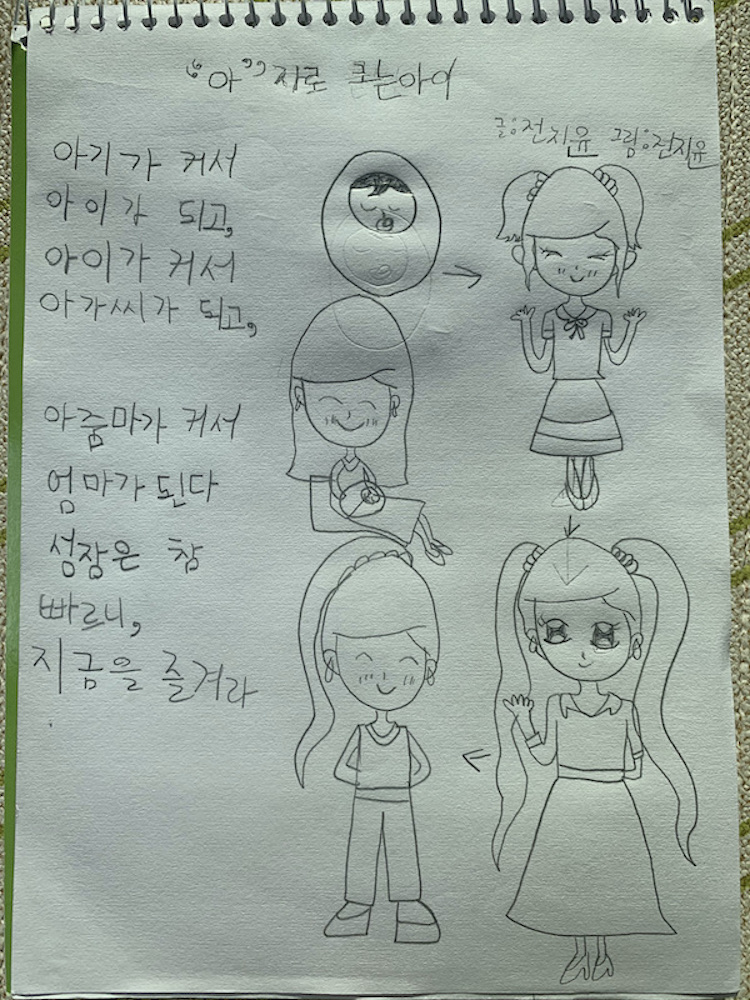 “아” 자로 크는아이
글:전지윤 그림:전지윤
아기가 커서
아이가 되고,
아이가 커서
아가씨가 되고,
아줌마가 커서
엄마가 된다
성장은 참
빠르니,
지금을 즐겨라